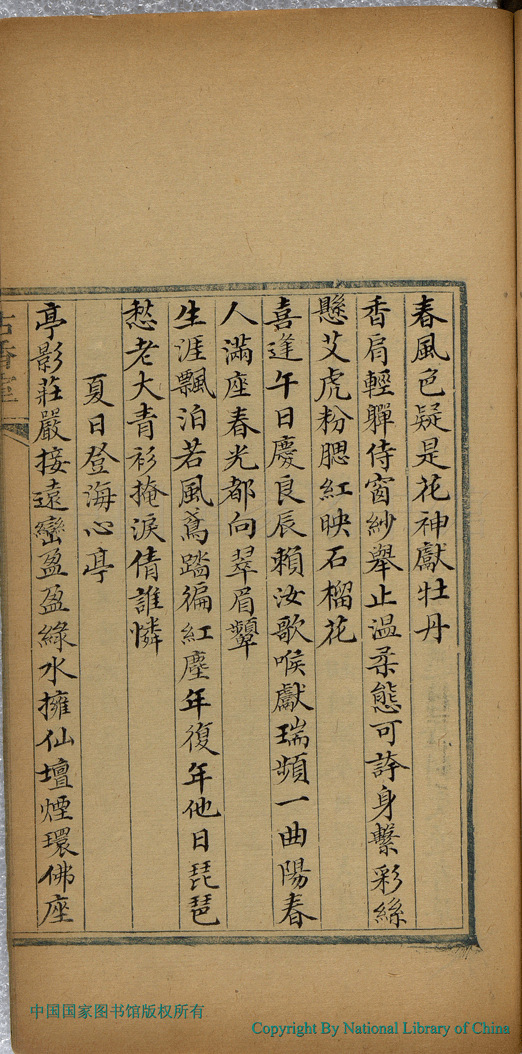 春風色疑是花神獻牡丹
香肩輕軃侍窗紗舉止温柔態可誇身繫彩絲
懸艾虎粉腮紅映石榴花
喜逢午日慶良辰賴汝歌喉獻瑞頻一曲陽春
人滿座春光都向翠眉顰
生涯飄泊若風鳶踏徧紅塵年復年他日琵琶
愁老大青衫掩淚倩誰憐
夏日登海心亭
亭影莊嚴接遠巒盈盈綠水擁仙壇煙環佛座
中国国家图书馆版权所有
Copyright By National Library of China